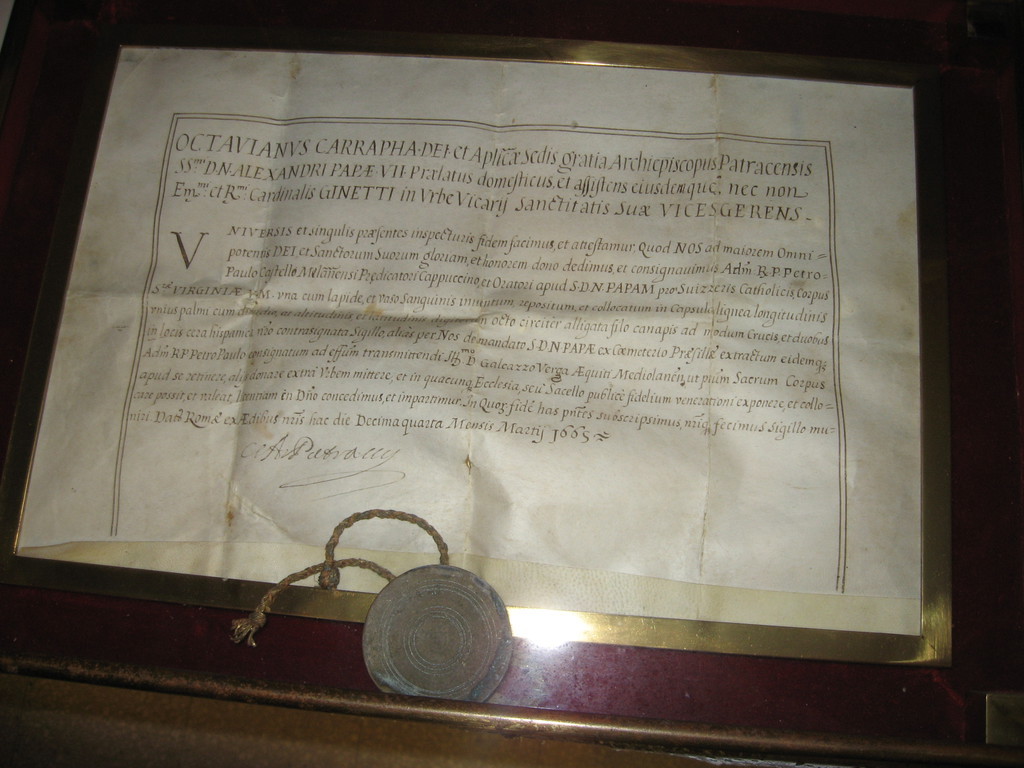 OCTAVIANVS CARRAPHA·DEI·et Aplicæ Sedis gratia Archiepiscopus Patracensis
SS.mi D.N. ALEXANDRI PAPÆ·VII·Prælatus domesticus, et assistens eiusdemque, nec non
Em.mi et R.mi Cardinalis GINETTI in Vrbe Vicarij Sanctitatis Suæ VICESGERENS
VNIVERSIS et singulis præsentes inspecturis fidem facimus, et attestamur, Quod NOS ad maiorem Omni-
potentis DEI et Sanctorum Suorum gloriam, et honorem dono dedimus, et consignauimus Adm. R.P. Petro-
Paulo Castello Prędicatori Cappuccino, et Oratori apud S.D.N. PAPAM pro Suizzeris Catholicis, Corpus
VIRGINIÆ V·M· vna cum lapide, et vaso Sanguinis inuentum repositum, et collocatum in Capsula lignea longitudinis
vnius palmi cum altitudinis, et octo circiter alligata filo canapis ad modum Crucis, et duobus
in locis cera hispanica nr̃o contrasignata Sigillo, aliàs per Nos de mandato S.D.N. PAPÆ ex Cœmeterio extractum eidemq;
Adm. R.P. Petro Paulo consignatum ad effum transmittendi D. Galeazzo Verga Æquiti Mediolanen. ut pium Sacrum Corpus
apud se retinere, alijs donare extra Vrbem mittere, et in quacunq; Ecclesia, seù Sacello publicè fidelium venerationi exponere, et collo-
care possit, et valeat, in Dño concedimus, et impartimur. In Quor. fidẽ has pñtes subscripsimus, nr̃iq; fecimus Sigillo mu-
niri. Dat. Romę ex Ædibus nr̃is hac die Decimaquarta Mensis Martij 1665